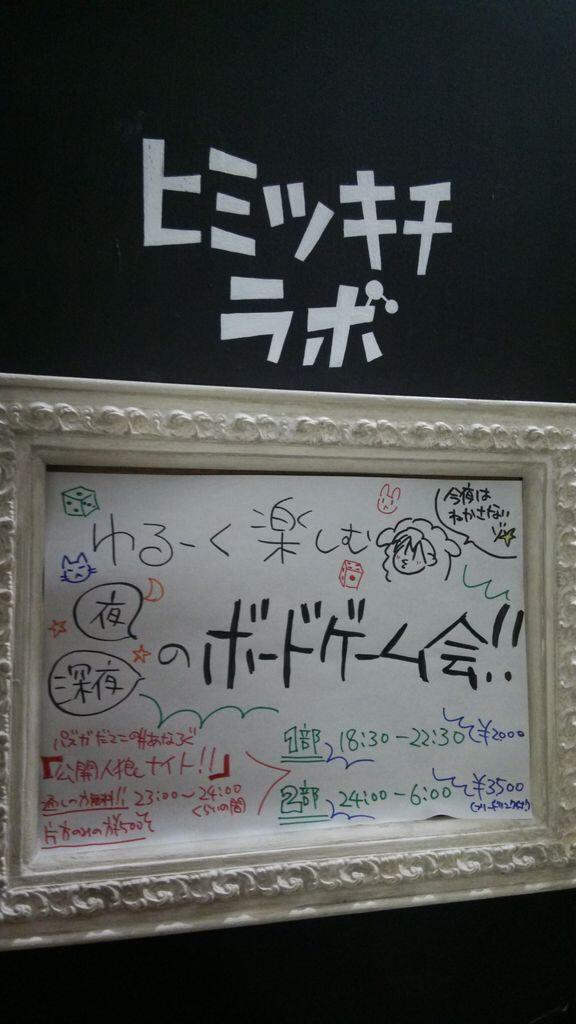 ヒミツキチ
ラボ
今夜は
ねかさない
ゾ
ゆるーく楽しむ
夜
深夜
のボードゲーム会!!
パズガだミニの#あなろぐ
『公開人狼ナイト!!』
通しの方無料!! 23:00〜24:00
くらいの間
片方のみの方¥500で
1部 18:30-22:30 ¥2000
2部 24:00-6:00 ¥3500
(フリードリンク付)